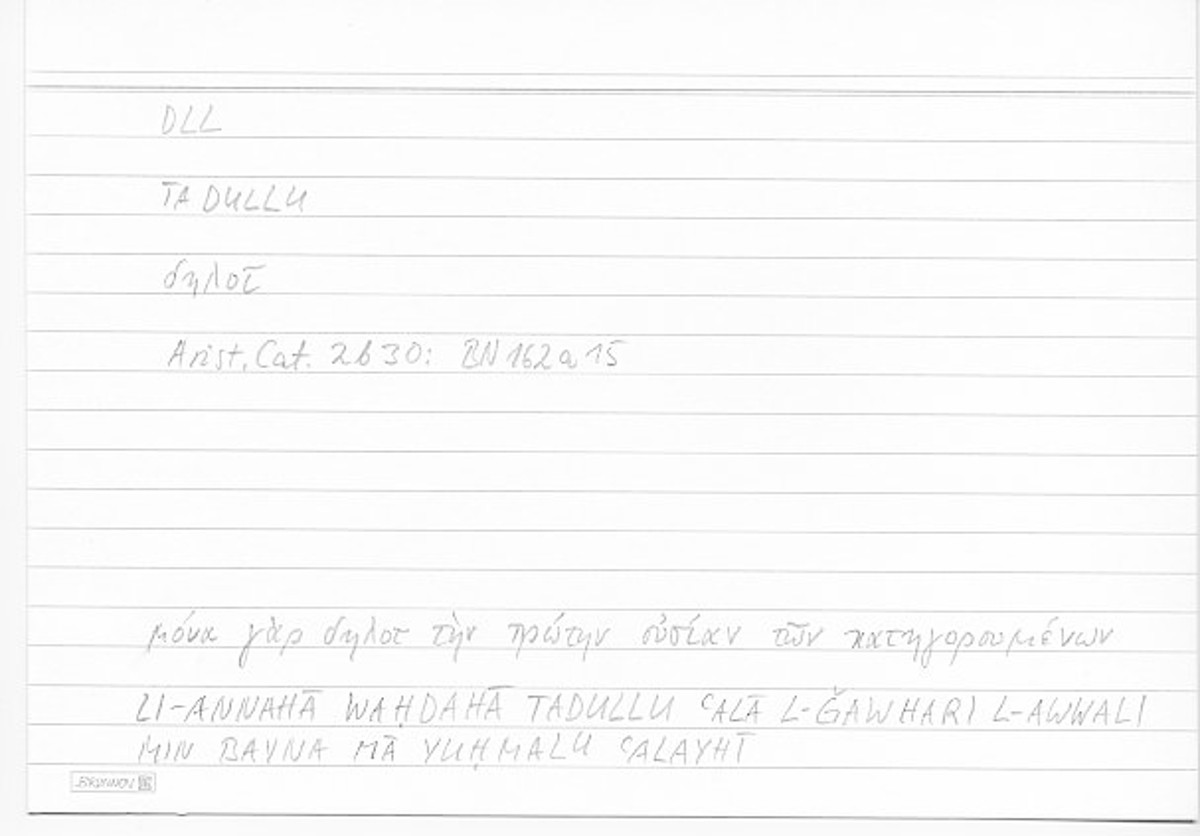 DLL
TADULLU
δηλοῖ
Arist. Cat. 2b30: BN 162a15
μόνα γὰρ δηλοῖ τὴν πρώτην οὐσίαν τῶν κατηγορουμένων
LI-ANNAHĀ WAḤDAHĀ TADULLU ʿALĀ L-ǦAWHARI L-AWWALI
MIN BAYNA MĀ YUḤMALU ʿALAYHĪ
BRUNNEN